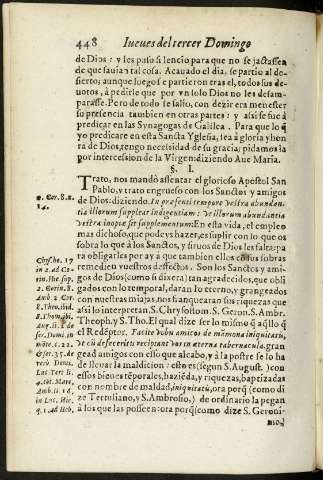 448 Iueues del tercer Domingo
de Dios: y les puso silencio para que no se jactassen
de que sauian tal cosa. Acauado el dia, se partio al de-
sierto; aunque luego se partieron tras el, todos sus de-
uotos, à pedirle que por vn solo Dios no les desam-
parasse. Pero de todo se salso, con dezir era menester
su presencia tambien en otras partes: y assi se fue à
predicar en las Synagogas de Galilea. Para que lo q̃
yo predicare en esta Sancta Yglesia, sea à gloria y hon
ra de Dios, tengo necessidad de su gracia; pidamos la
por intercession de la Virgen: diziendo Aue Maria.
§. I.
Trato, nos mandò assentar el glorioso Apostol San
Pablo, y trato engrueso con los Sanctos y amigos
de Dios: diziendo. In præsenti tempore vestra abundan-
tia illorum suppleat indigentiam: vt illorum abundantia
vestræ inopiæ sit supplementum: En esta vida, el empleo
mas dichoso, que podeys hazer, es suplir con lo que os
sobra lo que à los Sanctos, y sieruos de Dios les falta: pa
ra obligarles por ay à que tambien ellos cō sus sobras
remedien vuestros deffectos. Son los Sanctos y ami-
gos de Dios (como si dixera) tan agradecidos, que obli
gados con lo temporal, daran lo eterno, y grangeados
con nuestras miajas, nos franquearan sus riquezas que
assi lo interpretan, S. Chrysostom. S. Geron. S. Ambr.
Theoph. y S. Tho. El qual dize ser lo mismo q̃ aq̃llo q̃
el Redẽptor. Facite vobis amicos de mãmona iniquitatis,
vt cũ defeceritis recipiant vos in æterna tabernacula. gran
gead amigos con ello que alcabo, y à la postre se lo ha
de lleuar la maldicion: esto es (segun S. August.) con
essos bienes tẽporales, haziẽda, y riquezas, baptizadas
con nombre de maldad, iniquitatis, ora porq̃ (como di
ze Tertuliano, y S. Ambrosio,) de ordinario la pegan
à los que las posseen: ora porq̃ (como dize S. Geroni-
2. Cor. 8. n.
14.
Chyso. 19
in 2. ad Co-
rin.
2. Corin. 8
Amb. 2 Cor.
8. Theo. ibid.
S. Thom. ibi.
Aug. li.
ser. Domi. in
mõte. c. 22.
& ser. 35. de
verb. Dom.
Ter. li.
4. cõt. Marc.
Amb. li. 16.
in Luc. Hie.
q. 1. ad Heb.